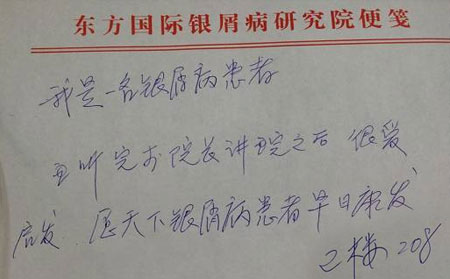 东方国际银屑病研究院便笺
我是一名银屑病患者
在听完方院长讲完之后 很爱
启发 愿天下银屑病患者早日康发
乙楼208